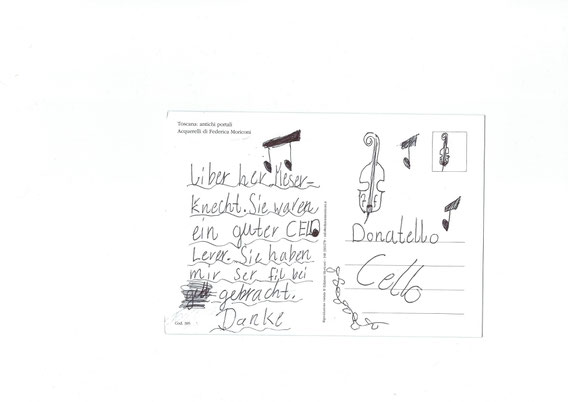 Toscana: antichi portali
Acquerelli di Federica Moriconi
Liber her Heser=
knecht. Sie waren
ein guter CELLO
Lerer. Sie haben
mir ser fil bei
gebracht.
Danke
Cod. 380
Donatello
Cello